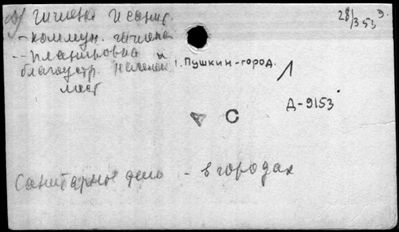 гигиена и санит.
28/3 53 э.
- коммун. гигиена
-- планировка и
благоустр. населен.
мест
1. Пушкин-город.
Д-9153
А С
Санитарное дело - в городах